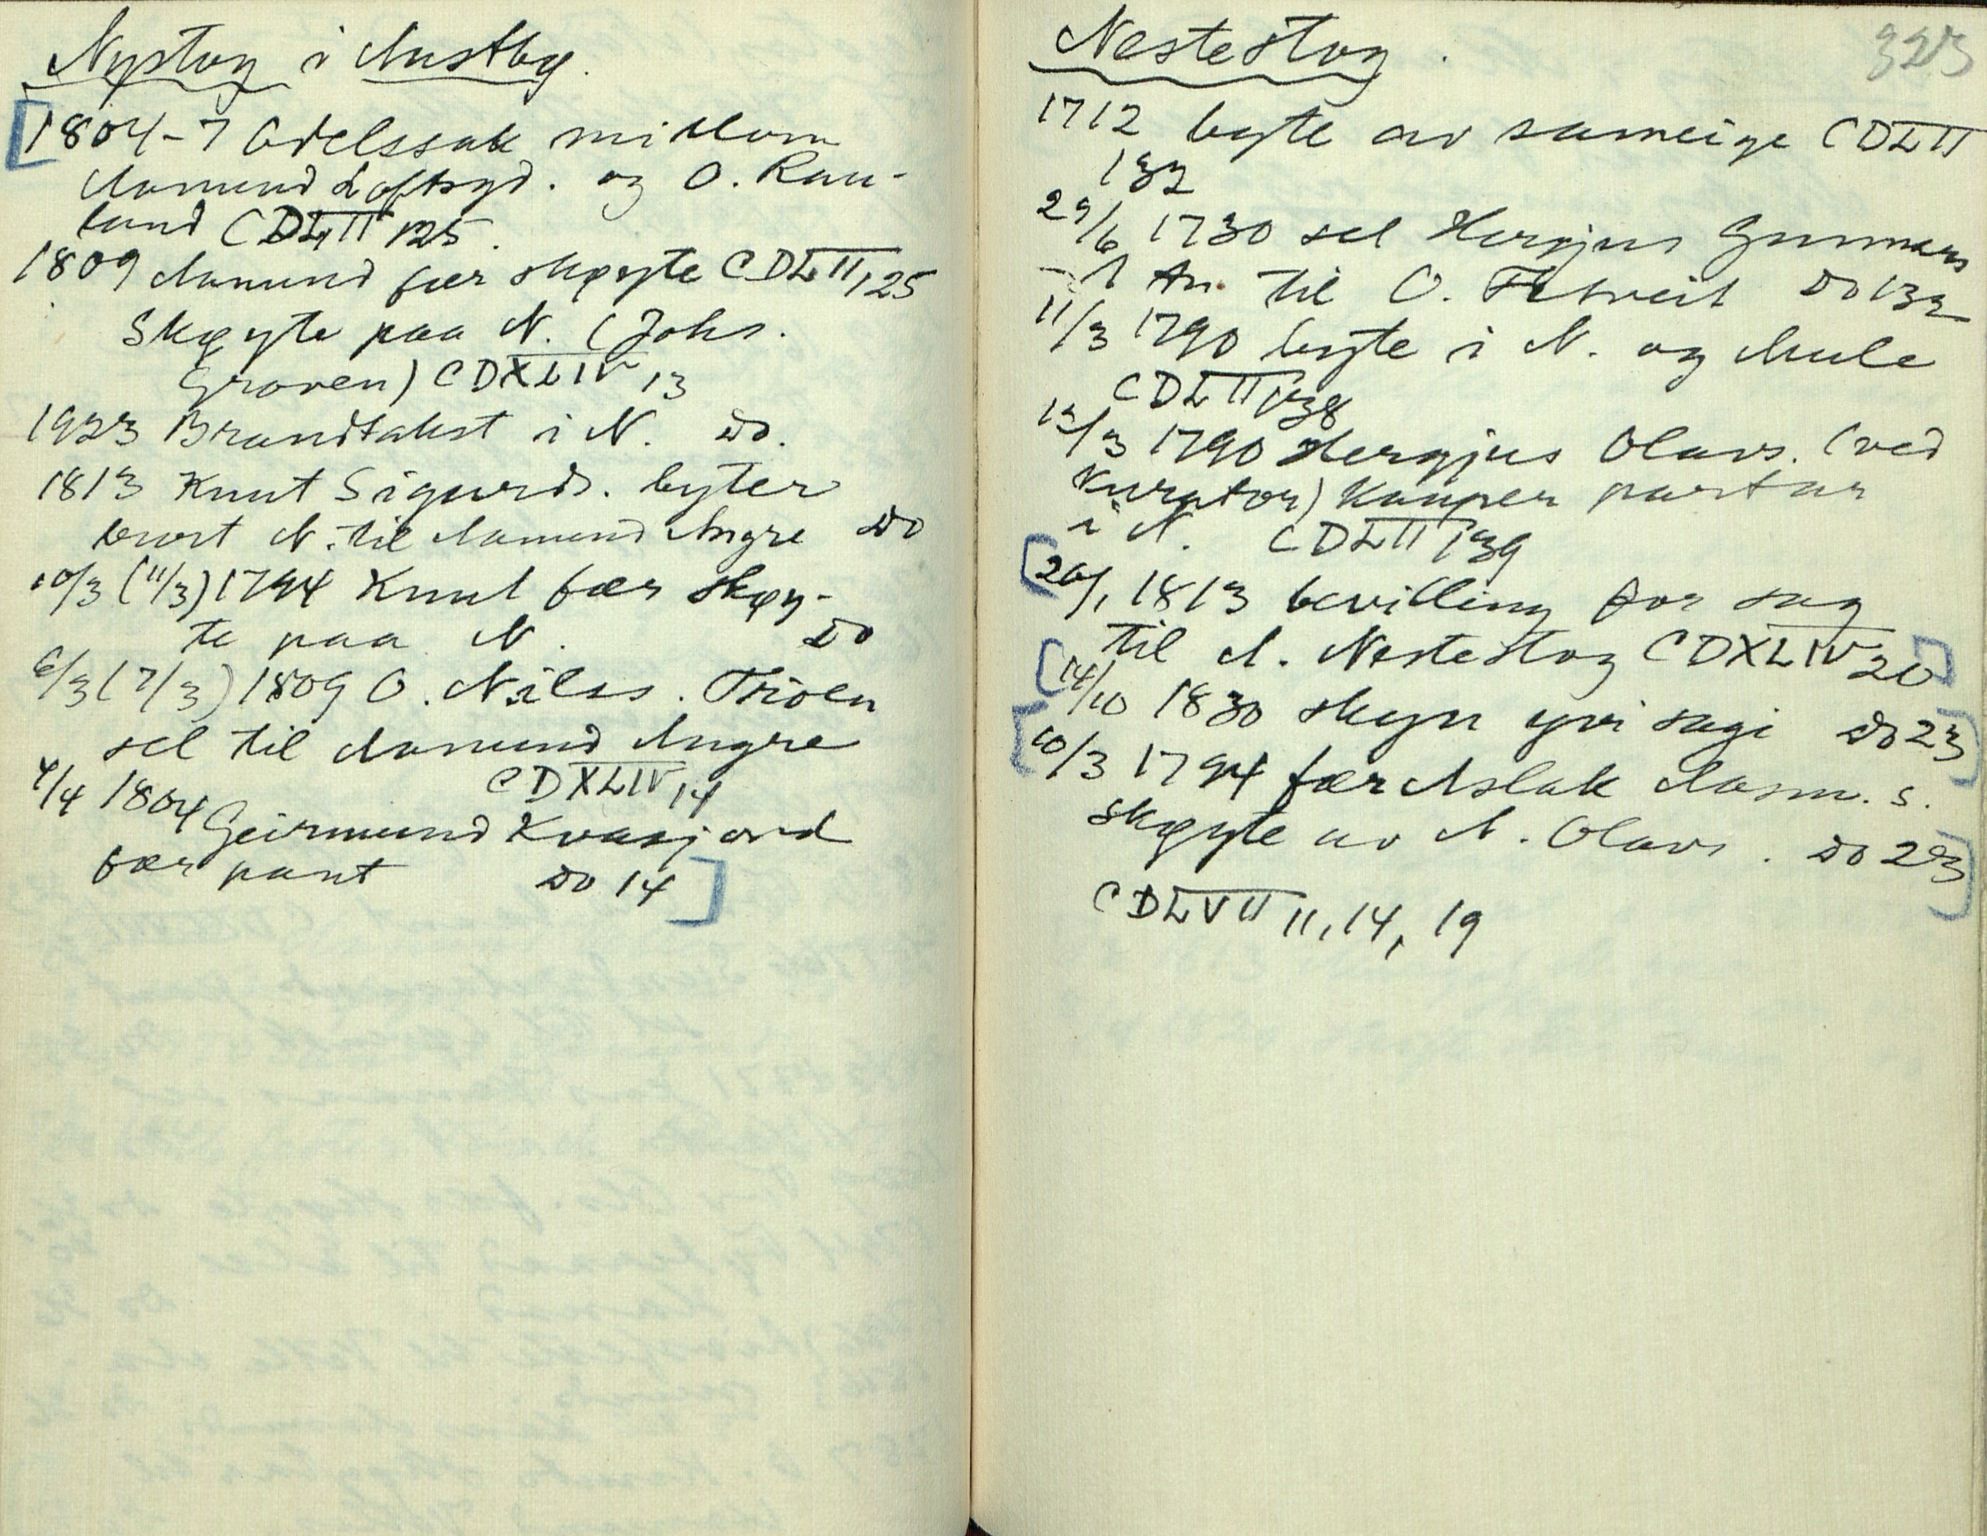 Nystog i Austbø.
[1804-7 Odelssak millom
Aamund Loftsgd. og O. Rau-
land CDLII 125.
1809 Aamund fær skøyte CDLII, 25
Skøyte paa N. (Johs.
Groven) CDXLIV, 13
1923 Brandtakst i N. Do.
1813 Knut Sigurds. byter
burt N. til Aamund Augre Do
10/3 (11/3) 1794 Knut fær skøy-
te paa N. Do
6/3 (7/3) 1809 O. Nilss. Troen
sel til Aamund Augre
CDXLIV, 14
4/4 1804 Geirmund Kvasjord
fær pant Do 14]
323
Nestestog.
1712 byte av sameige CDLII
132
29/6 1730 sel Hergjus Gunnars
til O. Do 132
11/3 1790 byte i N. og Mule
CDLII 138
12/3 1790 Hergjus Olavs. (ved
Kurator) kauper partar
i N. CDLII 139
[20/1 1813 bevilling for sag
til A. Nestestog CDXLIV 20]
[14/10 1830 skyn yvi sagi Do 23]
[10/3 1794 fær Aslak Aasm. s.
skøyte av A. Olavs. Do 23]
CDLVII 11, 14, 19